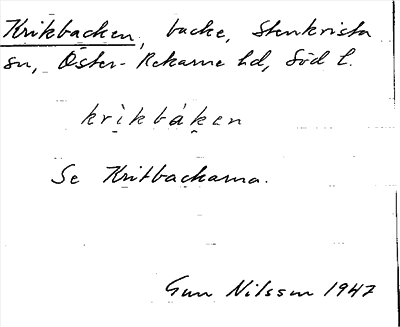 Krikbacken, backe, Stenkvista
sn, Öster-Rekarne hd, Söd l.
krìkbáken
Se Kritbackarna.
Gun Nilsson 1947